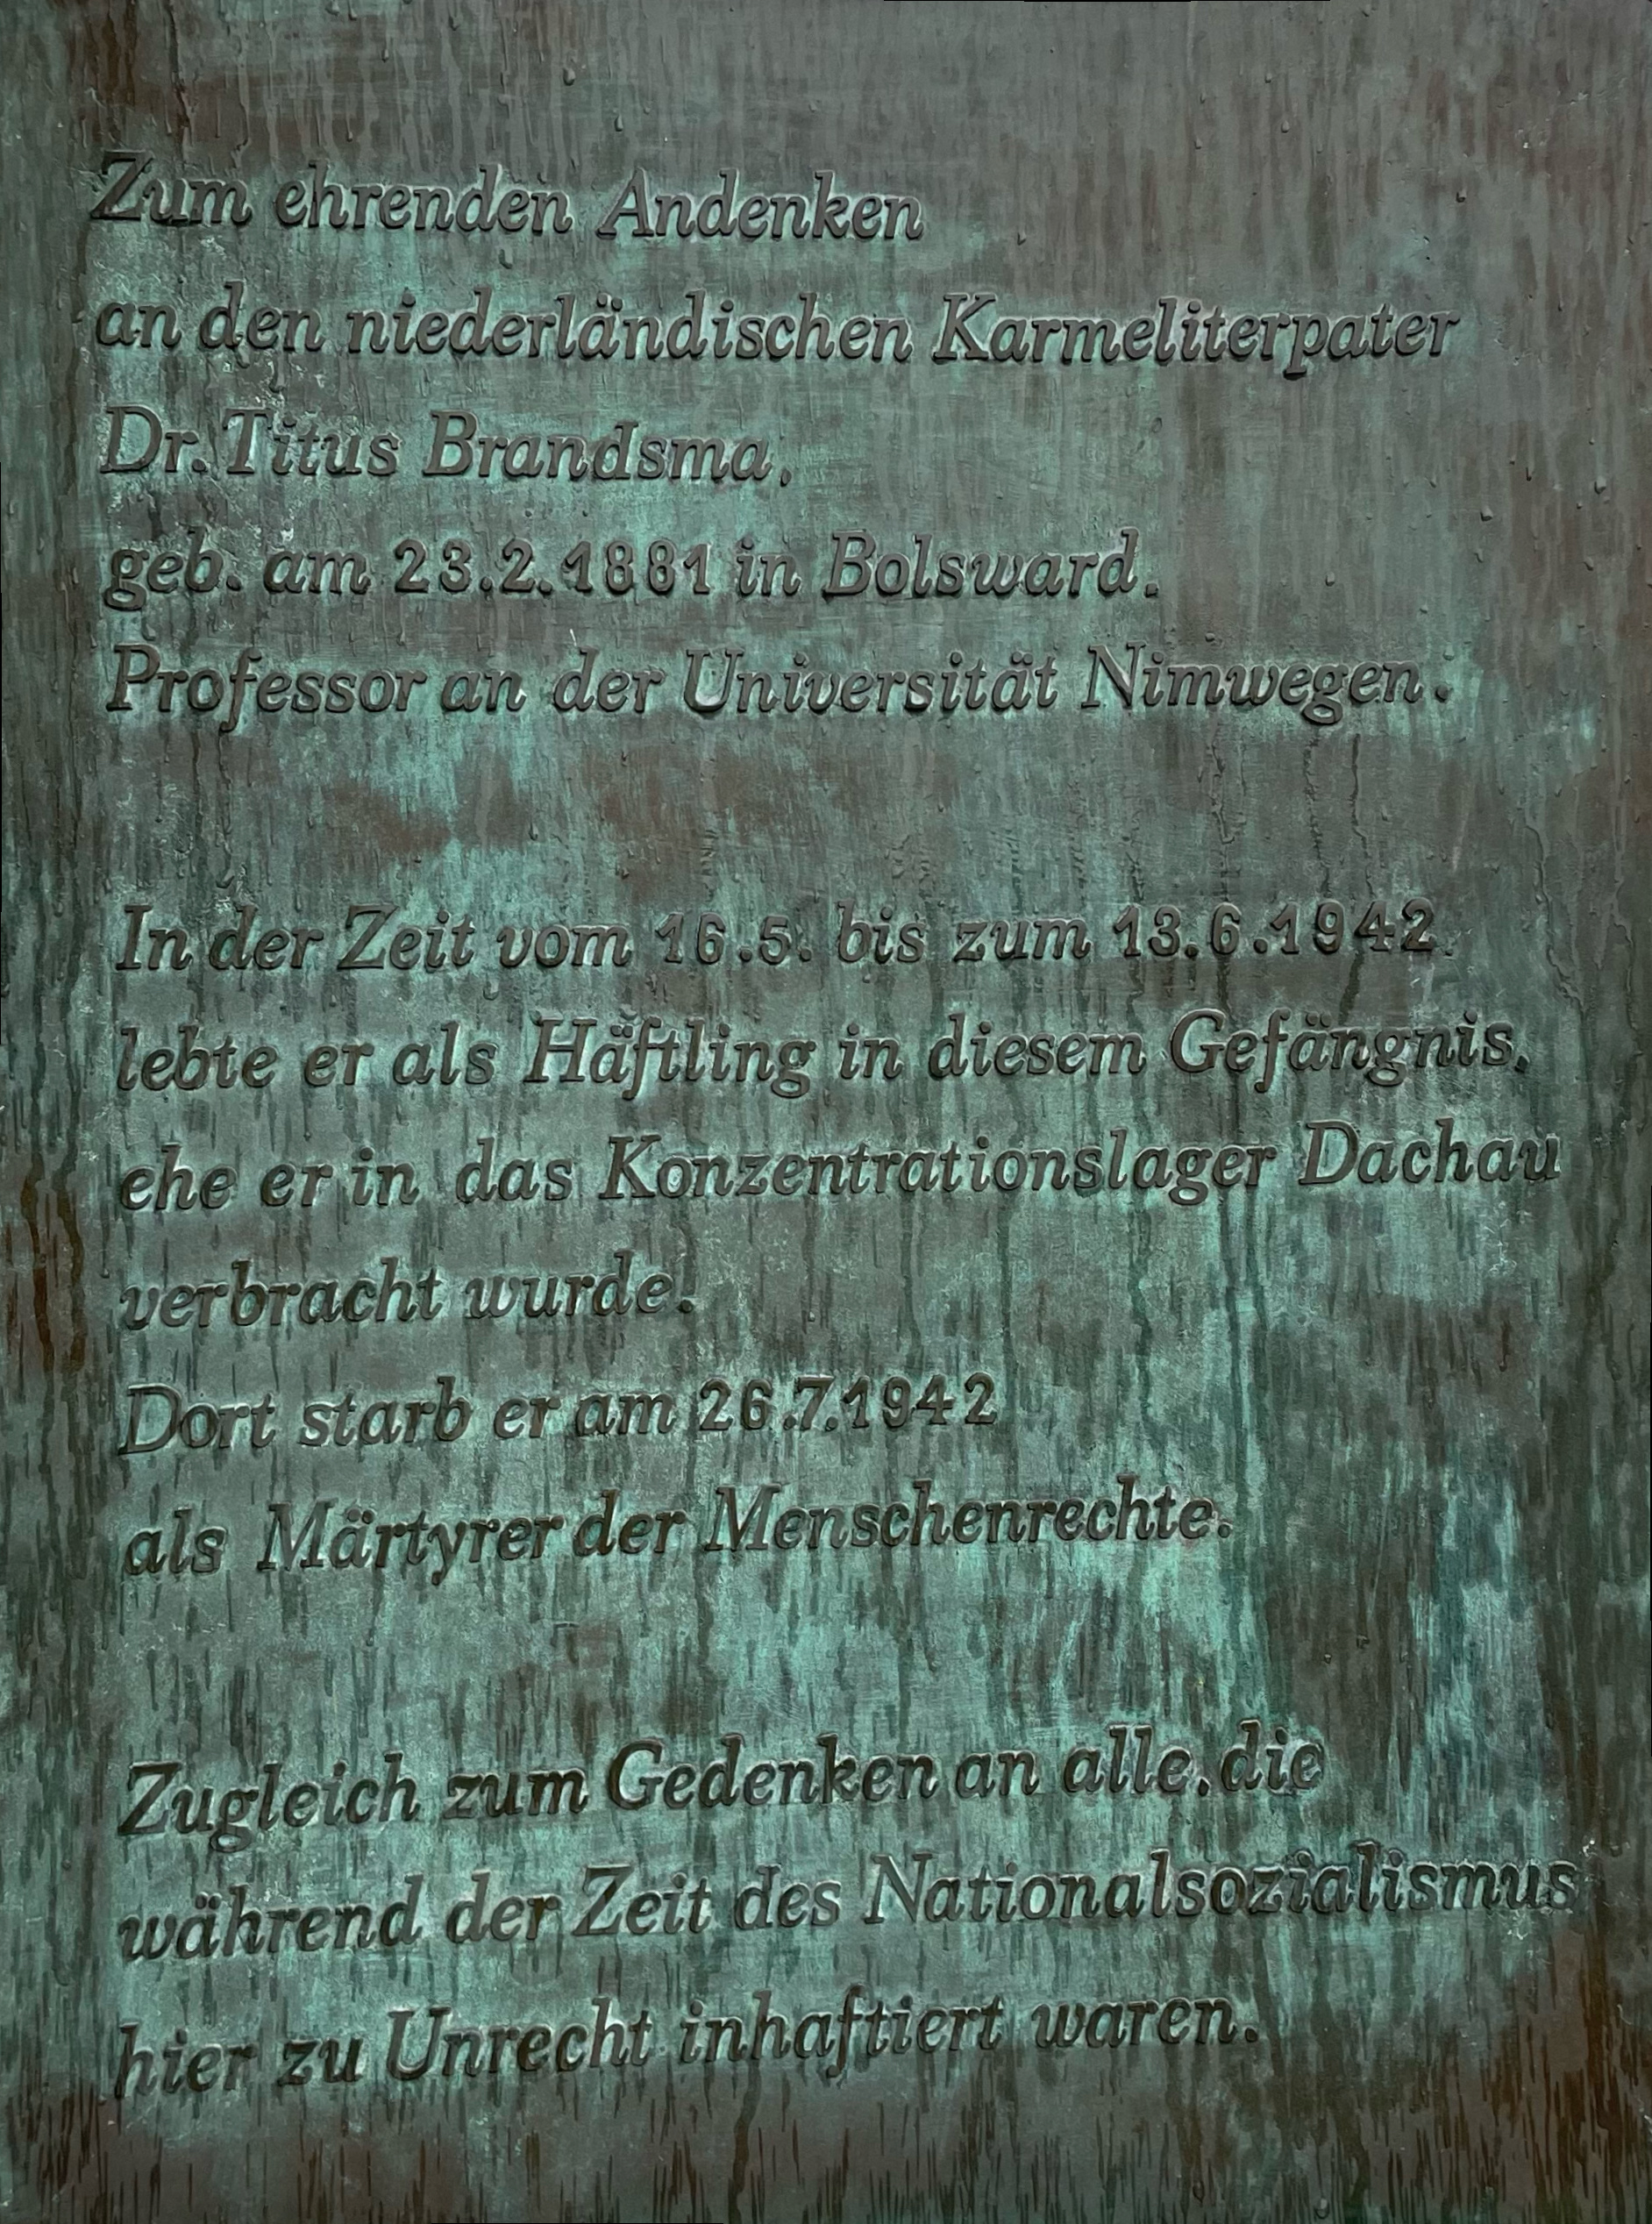 Zum ehrenden Andenken
an den niederländischen Karmeliterpater
Dr. Titus Brandsma,
geb. am 23.2.1881 in Bolsward.
Professor an der Universität Nimwegen.
In der Zeit vom 16.5. bis zum 13.6.1942
lebte er als Häftling in diesem Gefängnis,
ehe er in das Konzentrationslager Dachau
verbracht wurde.
Dort starb er am 26.7.1942
als Märtyrer der Menschenrechte.
Zugleich zum Gedenken an alle, die
während der Zeit des Nationalsozialismus
hier zu Unrecht inhaftiert waren.